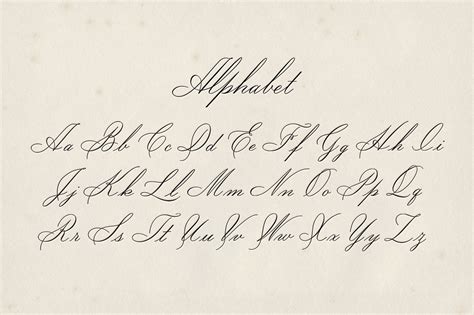 Alphabet
Aa Bb Cc Dd Ee Ff Gg Hh Ii
Jj Kk Ll Mm Nn Oo Pp Qq
Rr Ss Tt Uu Vv Ww Xx Yy Zz